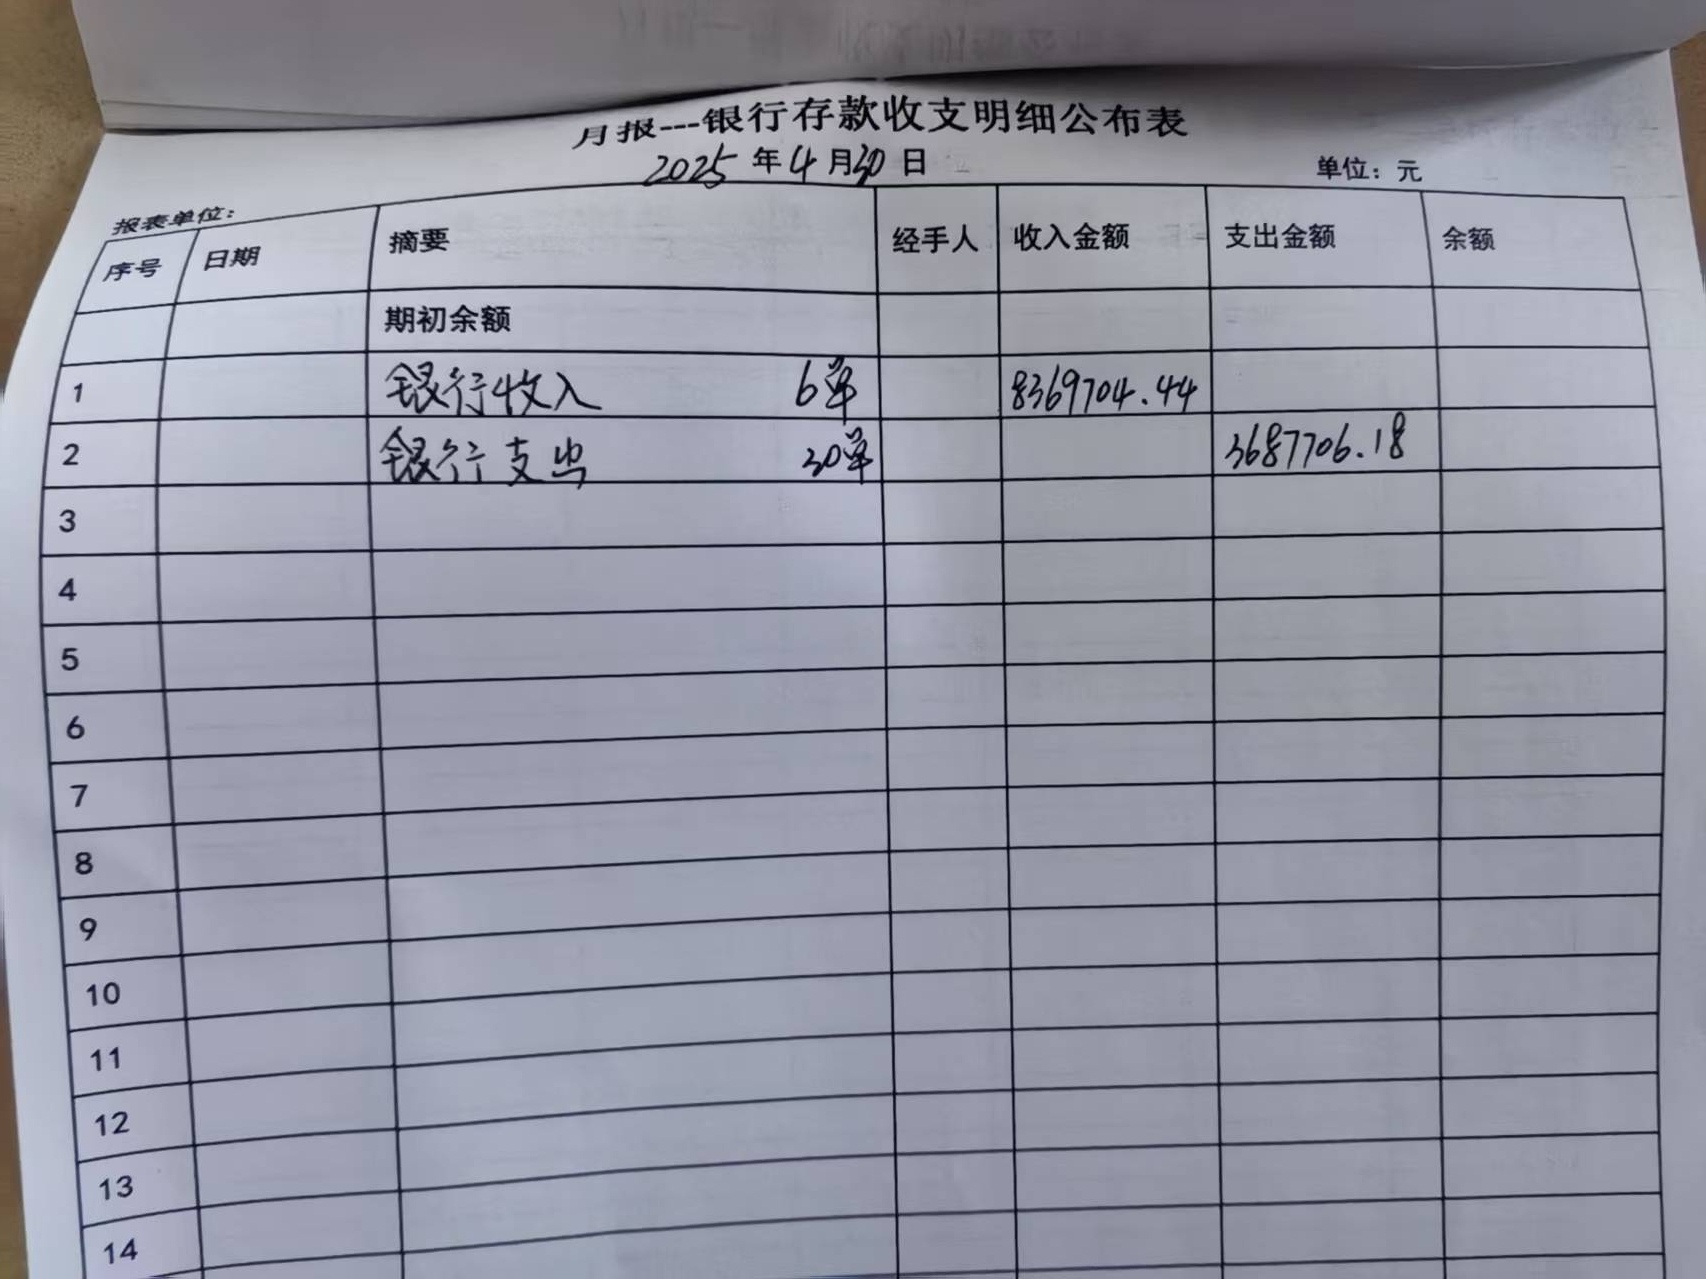 月报---银行存款收支明细公布表
2025 年 4 月 30 日
单位：元
报表单位：
序号 日期 摘要 经手人 收入金额 支出金额 余额
期初余额
1 银行收入 6单 8369704.44
2 银行支出 30单 3687706.18
3
4
5
6
7
8
9
10
11
12
13
14